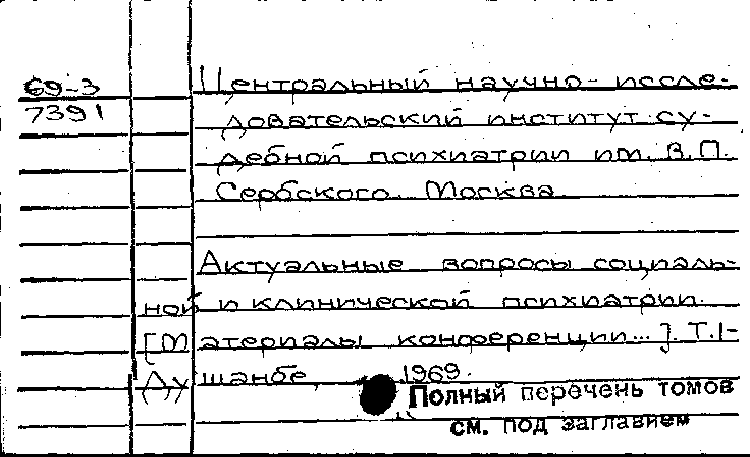 69-3
7391
Центральный научно-иссле-
довательский институт су-
дебной психиатрии им. В.П.
Сербского. Москва.
Актуальные вопросы социаль-
ной и клинической психиатрии.
[Материалы конференции...]. Т.1-
Душанбе, 1969.
Полный перечень томов
см. под заглавием